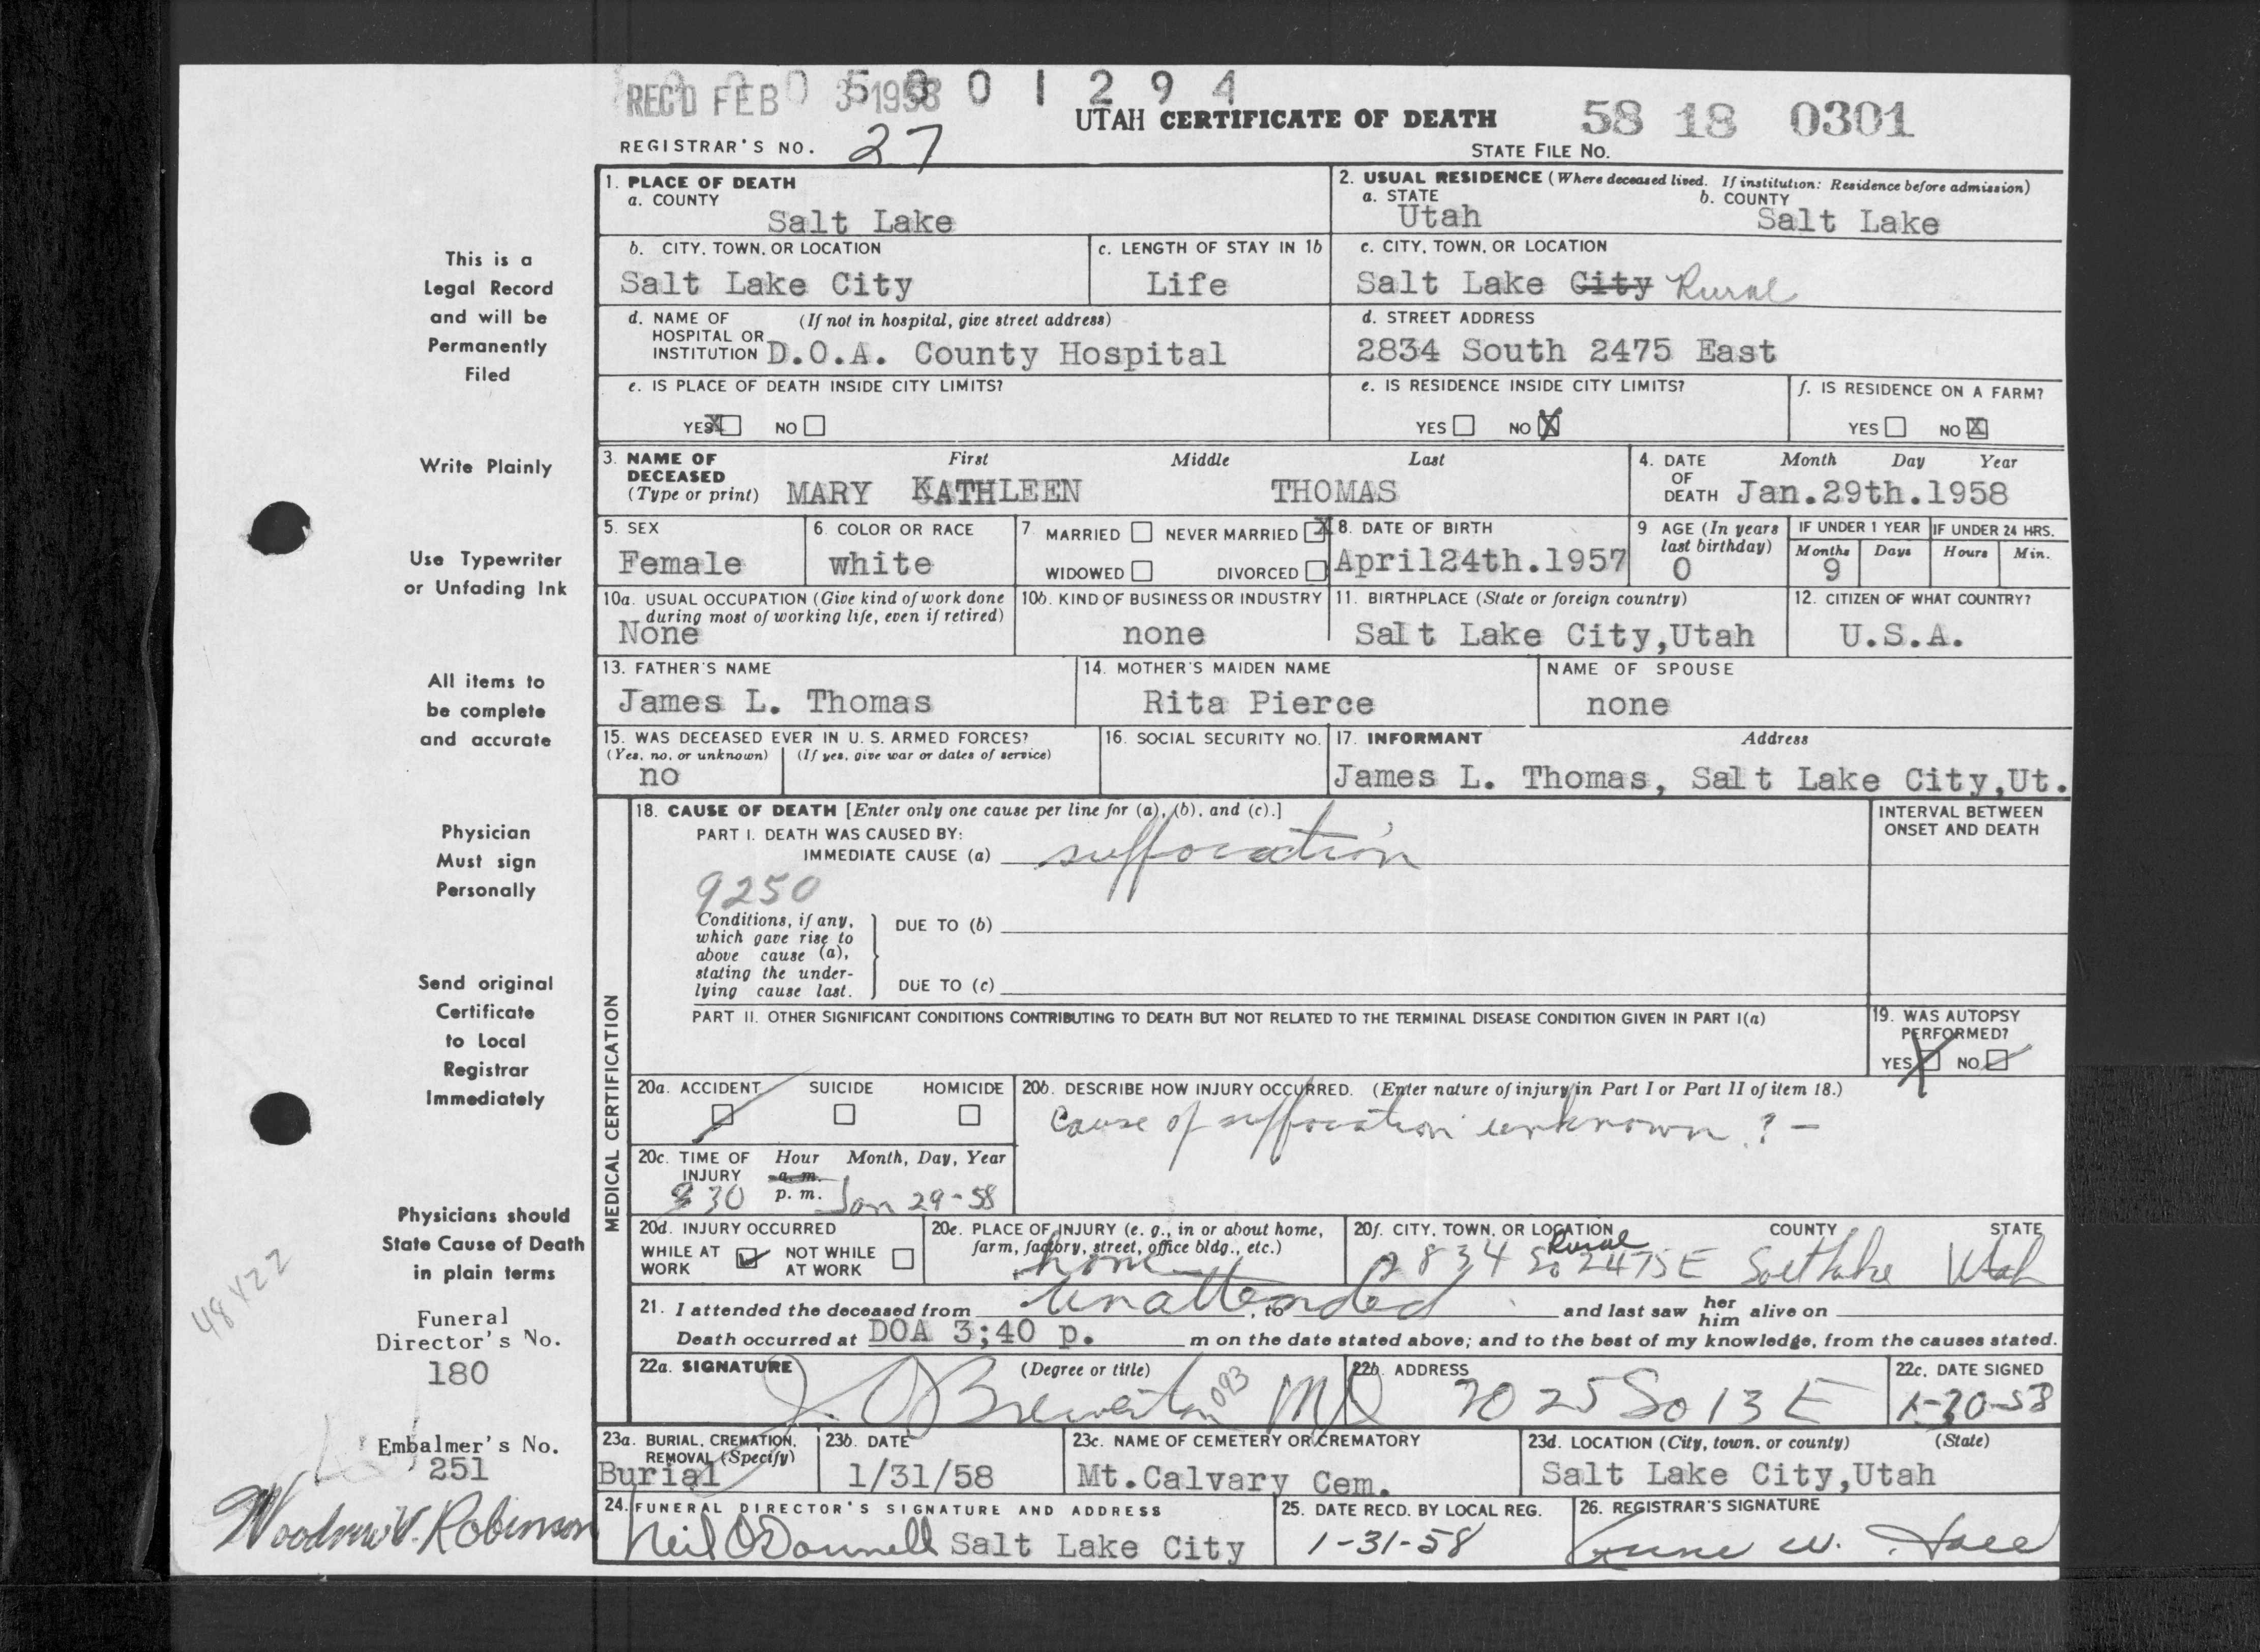 REC'D FEB 3 1958
0 5 8 0 1 2 9 4
UTAH CERTIFICATE OF DEATH
58 18 0301
REGISTRAR'S NO. 27
STATE FILE NO.
1. PLACE OF DEATH
a. COUNTY
Salt Lake
2. USUAL RESIDENCE (Where deceased lived. If institution: Residence before admission)
a. STATE b. COUNTY
Utah Salt Lake
b. CITY, TOWN, OR LOCATION
Salt Lake City
c. LENGTH OF STAY IN 1b
Life
c. CITY, TOWN, OR LOCATION
Salt Lake City Rural
d. NAME OF (If not in hospital, give street address)
HOSPITAL OR
INSTITUTION D.O.A. County Hospital
d. STREET ADDRESS
2834 South 2475 East
e. IS PLACE OF DEATH INSIDE CITY LIMITS?
YES X NO
e. IS RESIDENCE INSIDE CITY LIMITS?
YES NO X
f. IS RESIDENCE ON A FARM?
YES NO X
3. NAME OF First Middle Last
DECEASED
(Type or print) MARY KATHLEEN THOMAS
4. DATE Month Day Year
OF
DEATH Jan.29th.1958
5. SEX
Female
6. COLOR OR RACE
white
7. MARRIED NEVER MARRIED X
WIDOWED DIVORCED
8. DATE OF BIRTH
April24th.1957
9 AGE (In years
last birthday)
0
IF UNDER 1 YEAR IF UNDER 24 HRS.
Months Days Hours Min.
9
10a. USUAL OCCUPATION (Give kind of work done
during most of working life, even if retired)
None
10b. KIND OF BUSINESS OR INDUSTRY
none
11. BIRTHPLACE (State or foreign country)
Salt Lake City,Utah
12. CITIZEN OF WHAT COUNTRY?
U.S.A.
13. FATHER'S NAME
James L. Thomas
14. MOTHER'S MAIDEN NAME
Rita Pierce
NAME OF SPOUSE
none
15. WAS DECEASED EVER IN U. S. ARMED FORCES?
(Yes, no, or unknown) (If yes, give war or dates of service)
no
16. SOCIAL SECURITY NO.
17. INFORMANT Address
James L. Thomas, Salt Lake City,Ut.
MEDICAL CERTIFICATION
18. CAUSE OF DEATH [Enter only one cause per line for (a), (b), and (c).]
PART I. DEATH WAS CAUSED BY:
IMMEDIATE CAUSE (a) suffocation
9250
INTERVAL BETWEEN
ONSET AND DEATH
Conditions, if any,
which gave rise to
above cause (a),
stating the under-
lying cause last.
DUE TO (b)
DUE TO (c)
PART II. OTHER SIGNIFICANT CONDITIONS CONTRIBUTING TO DEATH BUT NOT RELATED TO THE TERMINAL DISEASE CONDITION GIVEN IN PART I(a)
19. WAS AUTOPSY
PERFORMED?
YES NO
20a. ACCIDENT SUICIDE HOMICIDE
20b. DESCRIBE HOW INJURY OCCURRED. (Enter nature of injury in Part I or Part II of item 18.)
Cause of suffocation unknown ? -
20c. TIME OF Hour Month, Day, Year
INJURY a. m.
30 p. m. Jan 29-58
20d. INJURY OCCURRED
WHILE AT WORK NOT WHILE AT WORK
20e. PLACE OF INJURY (e. g., in or about home,
farm, factory, street, office bldg., etc.)
home
20f. CITY, TOWN, OR LOCATION COUNTY STATE
Rural
2834 So 2475 E Salt Lake Utah
21. I attended the deceased from Unattended, to and last saw her him alive on
Death occurred at DOA 3;40 p. m on the date stated above; and to the best of my knowledge, from the causes stated.
22a. SIGNATURE (Degree or title)
Brewerton MD
093
22b. ADDRESS
2025 So 13 E
22c. DATE SIGNED
1-30-58
23a. BURIAL, CREMATION,
REMOVAL (Specify)
Burial
23b. DATE
1/31/58
23c. NAME OF CEMETERY OR CREMATORY
Mt.Calvary Cem.
23d. LOCATION (City, town, or county) (State)
Salt Lake City,Utah
24. FUNERAL DIRECTOR'S SIGNATURE AND ADDRESS
Neil O'Donnell Salt Lake City
25. DATE RECD. BY LOCAL REG.
1-31-58
26. REGISTRAR'S SIGNATURE
This is a
Legal Record
and will be
Permanently
Filed
Write Plainly
Use Typewriter
or Unfading Ink
All items to
be complete
and accurate
Physician
Must sign
Personally
Send original
Certificate
to Local
Registrar
Immediately
Physicians should
State Cause of Death
in plain terms
48422
Funeral
Director's No.
180
Embalmer's No.
251
Woodrow W. Robinson